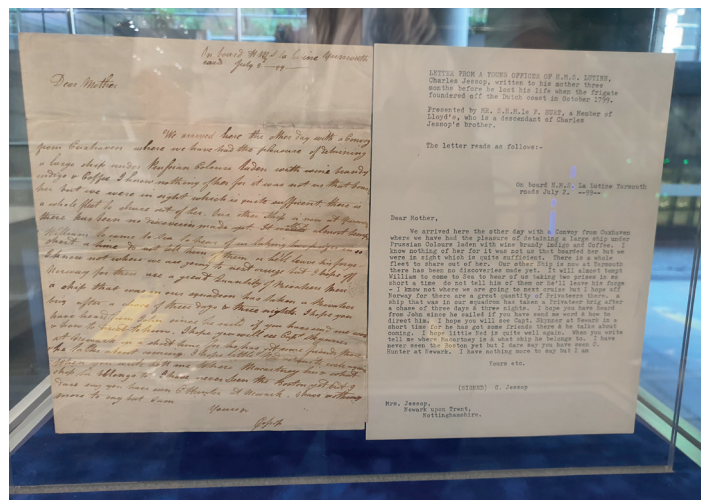 On board H.M.S La Lutine Yarmouth
road July 2 --99--
Dear Mother
We arrived here the other day with a Convoy
from Cuxhaven where we have had the pleasure of detaining
a large ship under Prussian Colours laden with wine brandy
indigo & Coffee I know nothing of her for it was not us that
her but we were in sight which is quite sufficient there is
a whole fleet to share out of her. Our other Ship is now at Yarmouth
there has been no discoveries made yet. It will almost tempt
William to come to Sea to hear of us taking two prizes in so
short a time do not tell him of them or he'll leave his forge
I know not where we are going to next cruize but I hope off
Norway for there are a great quantity of Privateers there
a ship that was in our squadron has taken a Privateer
brig after a chase of three days & three nights I hope you
have heard from John since he sailed if you have send me word
& how to direct to him. I hope you will see Capt Skynner
at Newark in a short time for he has got some friends there
he talks about coming I hope little Ned is quite well again
When you write tell me where Macartney is & what
ship he belongs to I have never seen the Boston yet but I
dare say you have seen C Hunter at Newark I have nothing
more to say but I am
Yours

LETTER FROM A YOUNG OFFICER OF H.M.S. LUTINE,
Charles Jessop, written to his mother three
months before he lost his life when the frigate
foundered off the Dutch coast in October 1799.
Presented by MR. S.H.M.le P. HURT, a Member of
Lloyd's, who is a descendant of Charles
Jessop's brother.
The letter reads as follows:-
On board H.M.S. La Lutine Yarmouth
roads July 2, --99--
Dear Mother,
We arrived here the other day with a Convoy from Cuxhaven
where we have had the pleasure of detaining a large ship under
Prussian Colours laden with wine brandy indigo and Coffee. I
know nothing of her for it was not us that boarded her but we
were in sight which is quite sufficient. There is a whole
fleet to share out of her. Our other Ship is now at Yarmouth
there has been no discoveries made yet. It will almost tempt
William to come to Sea to hear of us taking two prizes in so
short a time do not tell him of them or he'll leave his forge
- I know not where we are going to next cruise but I hope off
Norway for there are a great quantity of Privateers there. a
ship that was in our squadron has taken a Privateer brig after
a chase of three days & three nights. I hope you have heard
from John since he sailed if you have send me word & how to
direct him. I hope you will see Capt. Skynner in Newark in a
short time for he has got some friends there & he talks about
coming. I hope little Ned is quite well again. When you write
tell me where Macartney is & what ship he belongs to. I have
never seen the Boston yet but I dare say you have seen C.
Hunter at Newark. I have nothing more to say but I am
Yours etc.
(SIGNED) C. Jessop
Mrs. Jessop,
Newark upon Trent,
Nottinghamshire.